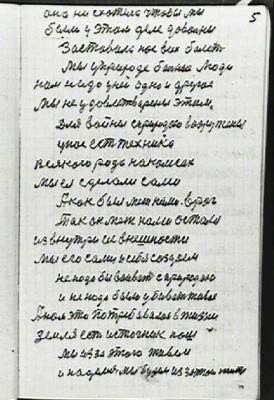 5
она не схотела чтобы мы
были у этом деле довольны
Заставила нас всех болеть
Мы у природе больные люди
нам надо у ней одно и другое
Мы не удовлетворены этим
Для войны с природою вооружены
у нас есть техника
всякого рода на колесах
Мы ее сделали сами
А как был меж нами враг
так он меж нами остался
из внутри и внешности
мы его сами у себя создаем
не надо бы воевать с природою
и не надо было убивать живое
А нам это потребовалось в жизни
Земля есть источник наш
мы из за этого живем
и надеемся мы будем из за этого жить